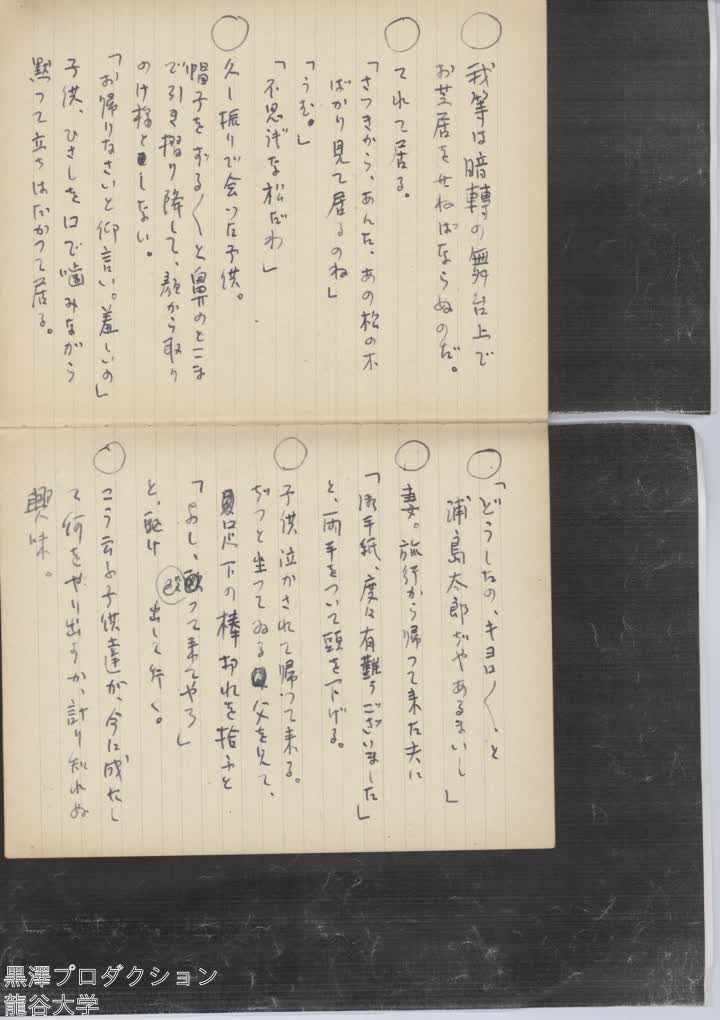 ○ 我等は暗轉の舞台上で
お芝居をせねばならぬのだ。
○ てれて居る。
「さつきから、あんた、あの松の木
ばかり見て居るのね」
「うむ。」
「不思議な松だわ」
○ 久し振りで会つた子供。
帽子をずる〱と鼻のとこま
で引き摺り降して、顔から取り
のけ様としない。
「お帰りなさいと仰言い。羞しいの」
子供、ひさしを口で噛みながら
黙つて立ちはだかつて居る。
○ 「どうしたの、キヨロ〱、と
浦島太郎ぢやあるまいし」
○ 妻。旅行から帰つて来た夫に
「お手紙、度々有難うございました」
と、両手をついて頭を下げる。
○ 子供泣かされて帰つて来る。
ぢつと坐つてゐる父を見て、
足下の棒切れを拾ふと
「よし、殴つて来てやろ」
と、駈け出して行く。
○ こう云ふ子供達が、今に成人し
て何をやり出すか、計り知れぬ
興味。
黒澤プロダクション
龍谷大学